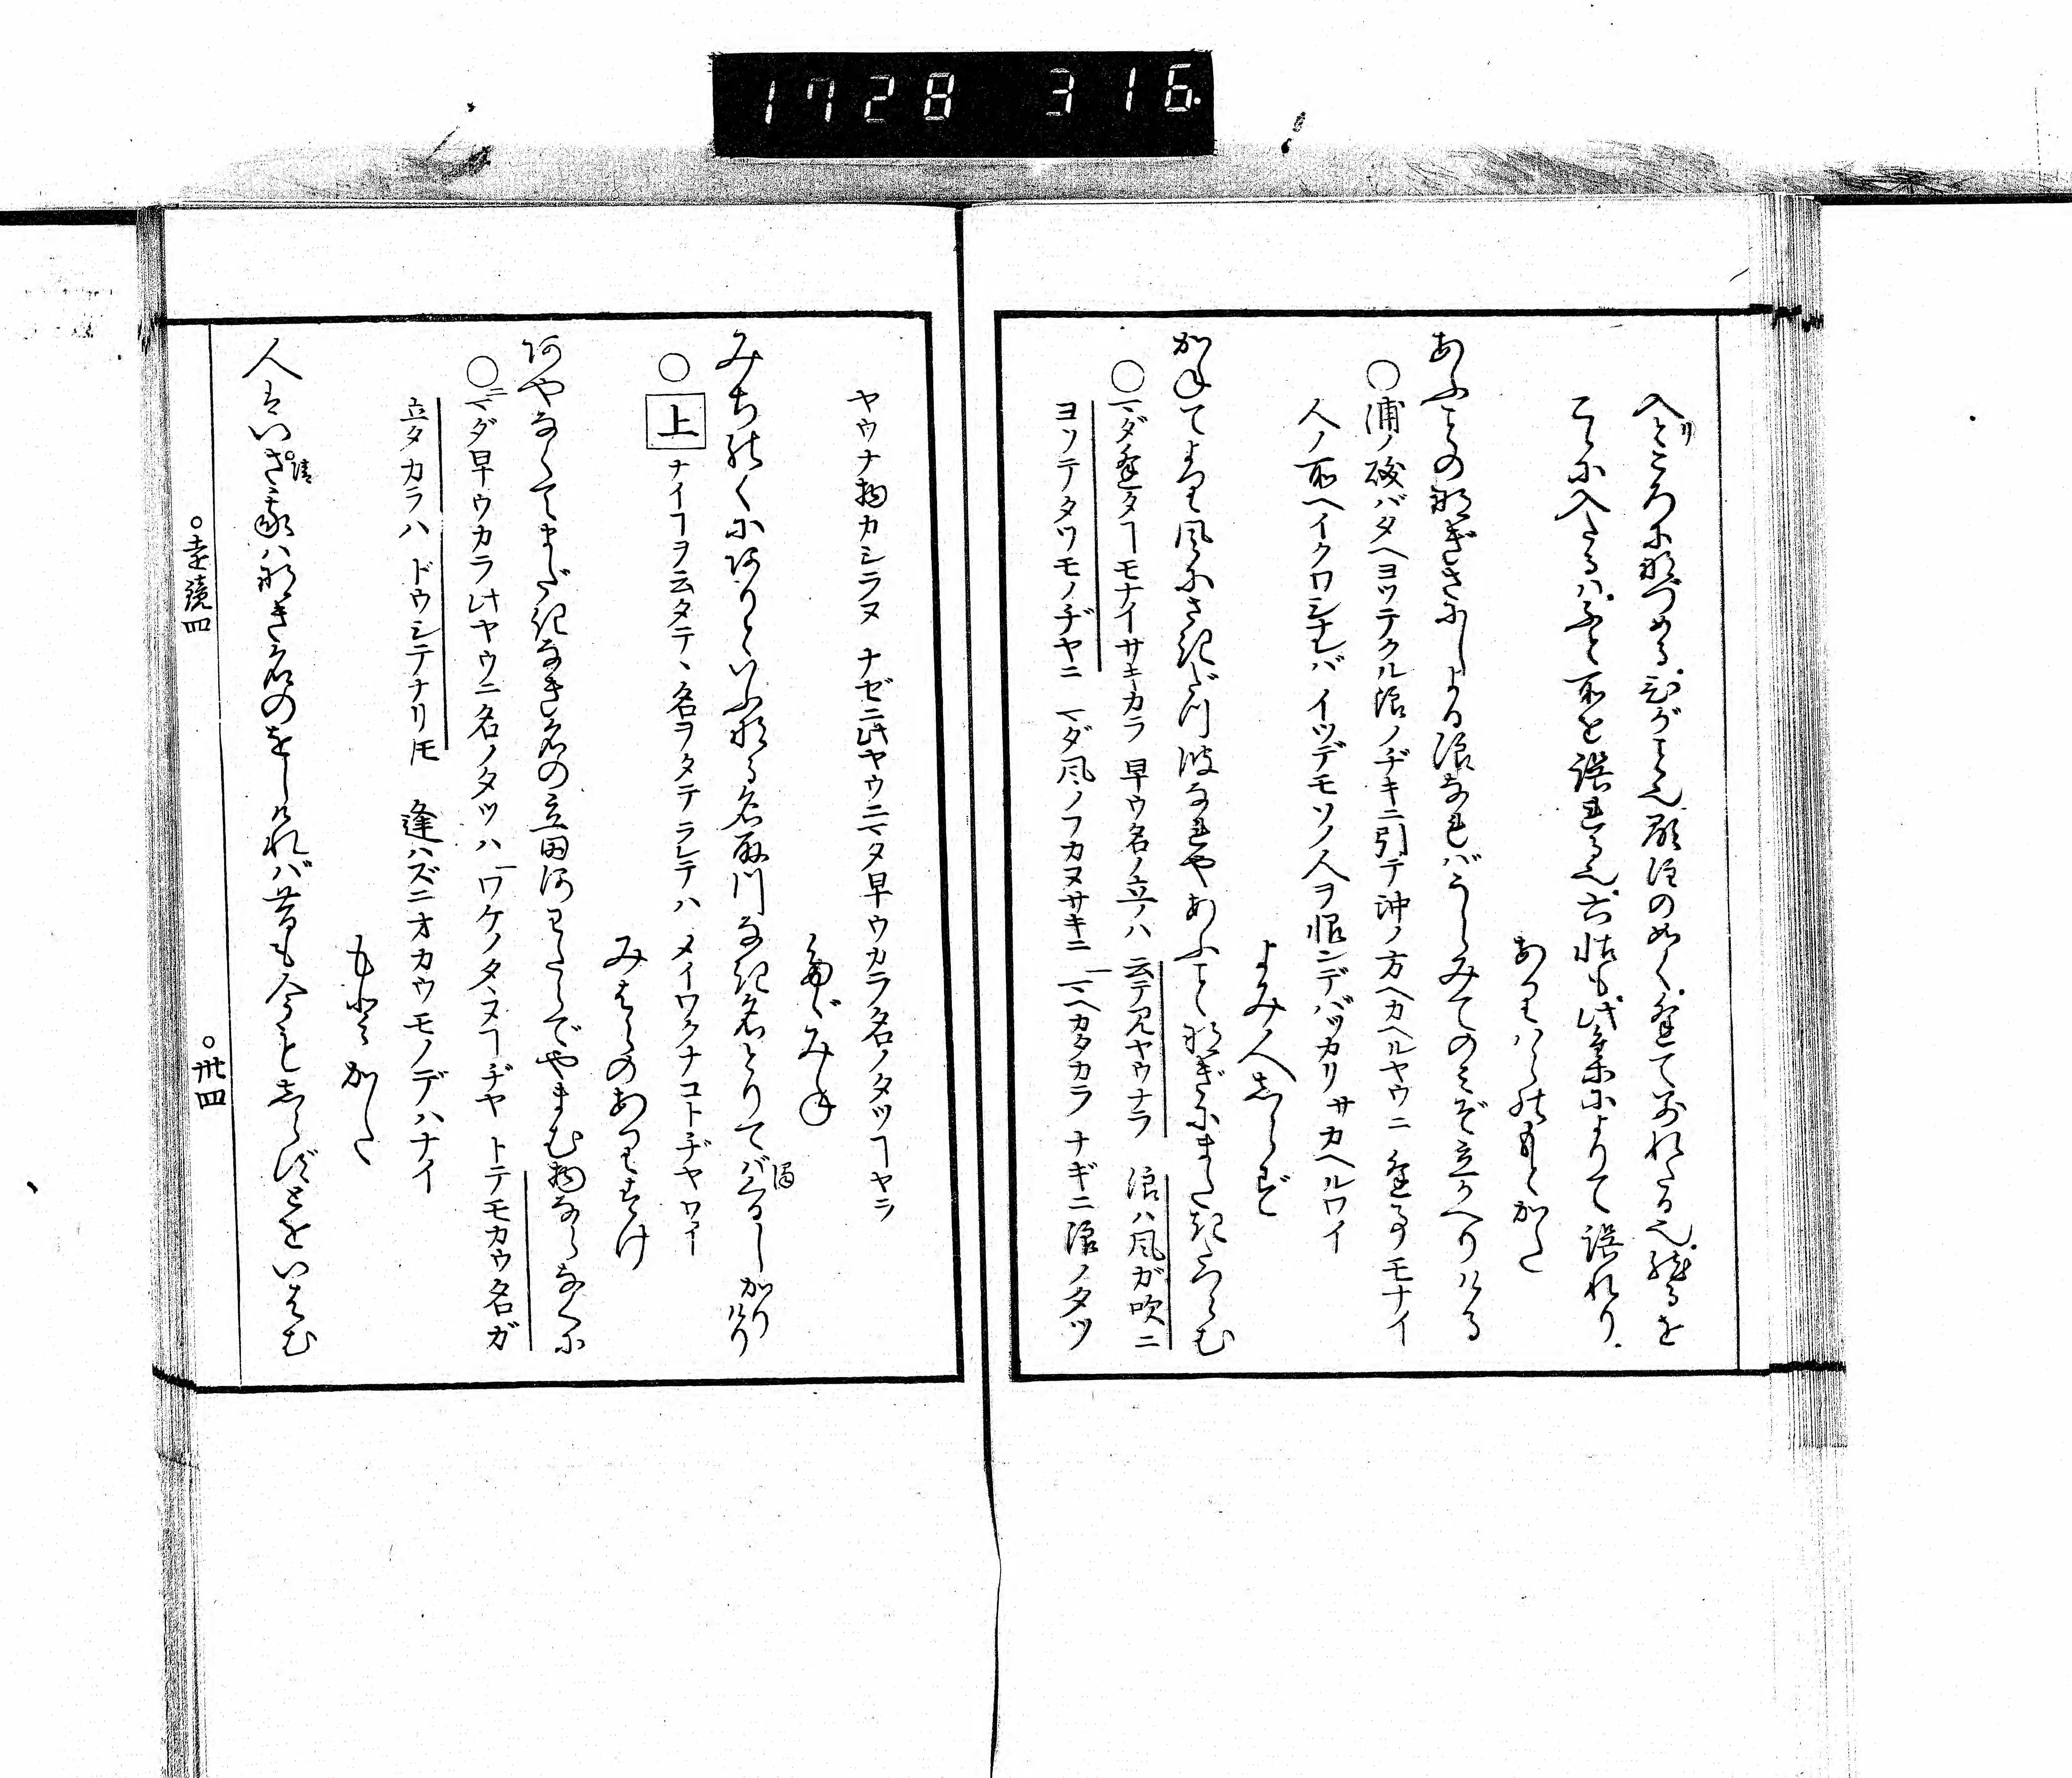 1728 316
入ところに外づめる
こゝに入たるハふと所を誤れる也
ありハらのもとかた
あふことのなぎさにしよる浪なればうらみてのみぞ立かへりける
○浦ノ磯バタヘヨツテクル浪ノヂキニ引テ沖ノ方ヘカヘルヤウニ逢フ事モナイ
人ノ所ヘイクワシナレバ イツデモソノ人ヲ恨ンデバツカリサカヘルワイ
よみ人しらず
かねてより風にさきだつ波なれやあふことなぎにまだき立らむ
○マダ逢タヿモナイサキカラ 早ウ名ノ立ノハ 云テ見ヤウナラ 浪ハ風ガ吹ニ
ヨツテタツモノヂヤニ マダ風ノフカヌサキニ マヘカタカラ ナギニ浪ノタツ
ヤウナ物カシラヌ ナゼニ此ヤウニマタ早ウカラ名ノタツヿヤラ
たゞみね
みちのくにありといふなる名取川なき名とりてハくるしかりけり
○上 ナイヿヲ云タテヽ名ヲタテラレテハ メイワクナコトヂヤワイ
みはるのありすけ
あやなくてまだきなき名の立田河わたらでやまむ物ならなくに
○マダ早ウカラ此ヤウニ名ノタツハ ワケノタヽヌヿヂヤ トテモカウ名ガ
立タカラハ ドウシテナリトモ 逢ハズニオカウモノデハナイ
もとかた
人ハいさ我ハなき名のをしければ昔も今もしらずとをいはむ
○遠鏡四
○卅四